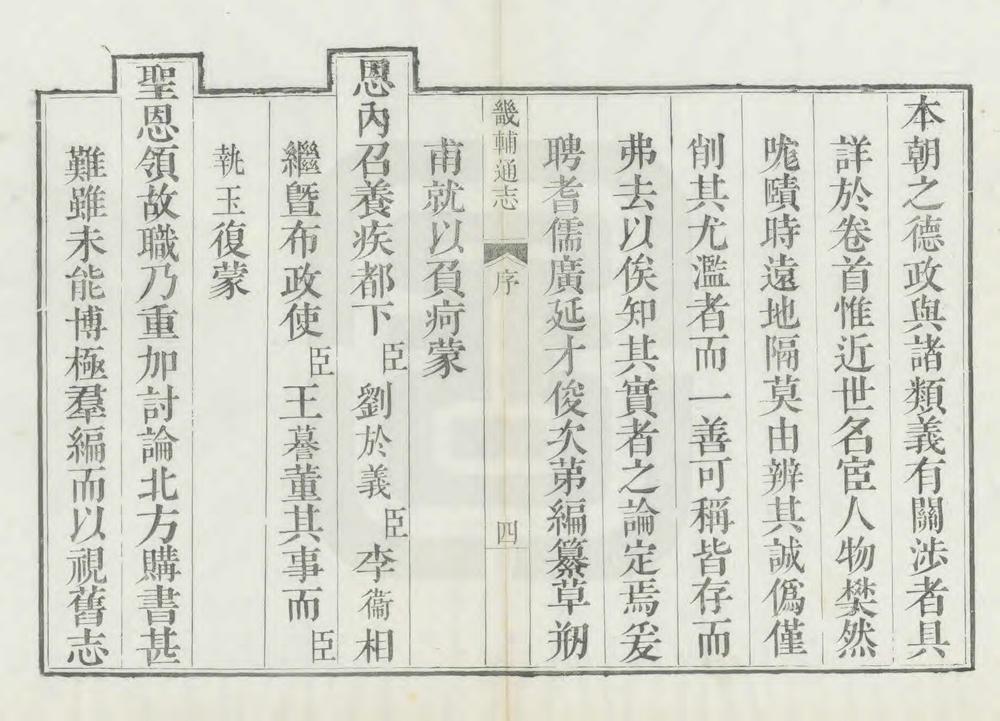 本朝之德政與諸類義有關涉者具
詳於卷首惟近世名宦人物樊然
哤賾時遠地隔莫由辨其誠僞僅
削其尤濫者而一善可稱皆存而
弗去以俟知其實者之論定焉爰
聘耆儒廣延才俊次苐編纂草剏
畿輔通志
序
四
甫就以負疴蒙
恩內召養疾都下臣劉於義臣李衞相
繼曁布政使臣王謩董其事而臣
執玉復蒙
聖恩領故職乃重加討論北方購書甚
難雖未能博極羣編而以視舊志